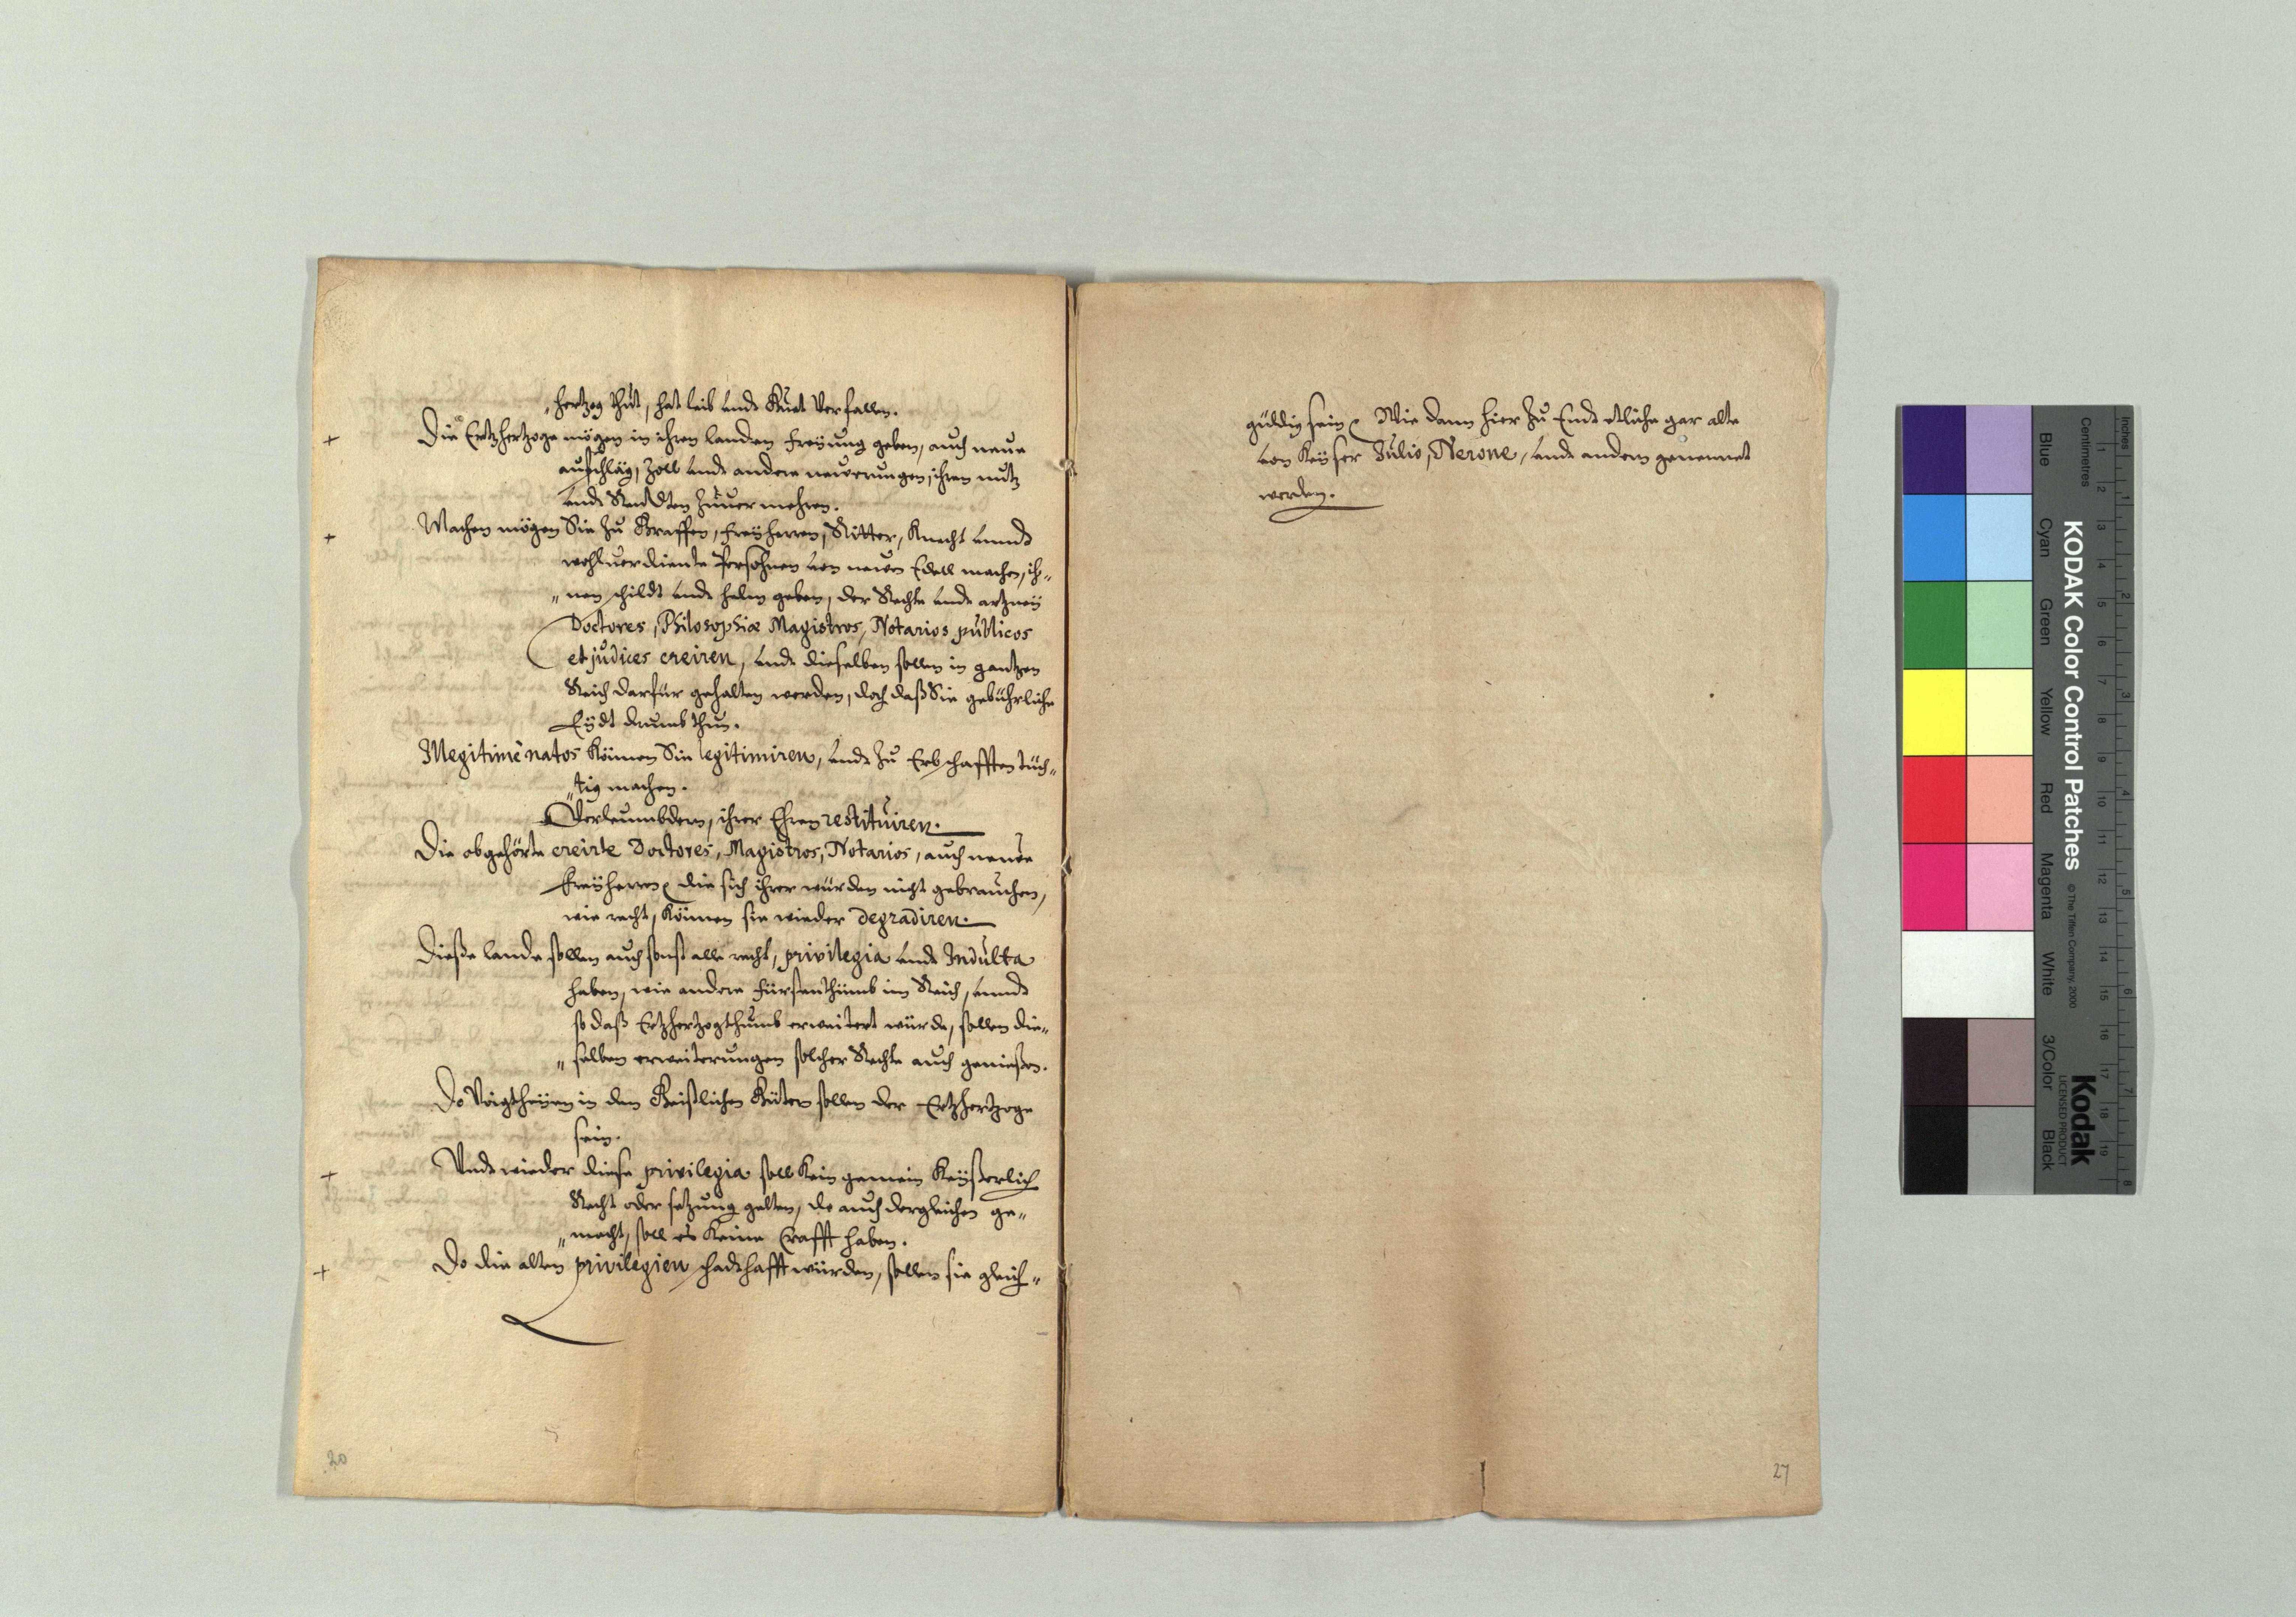 „hertzog thut, hat leib unde Guet verfallen.
+ Die Ertzhertzoge mögen in ihren landen freyung geben, auch neue
aufschläg, Zoll unde andere neuerungen, ihren nutz
unde Rendten zuuermehren.
+ Machen mögen Sie zu Graffen, freyherren, Ritter, Knecht unnde
wohluerdiente Persohnen von neuen Edell machen, ih„
„nen schildt unde helm geben, der Rechte unde artzney
Doctores, Philosophiæ Magistros, Notarios publicos
et judices creiren, unde dieselben sollen in gantzen
Reich darfür gehalten werden, doch daß Sie gebührliche
Eydt drumb thun.
Illegitimè natos können Sie legitimiren, unde zu Erbschafften tüch„
„tig machen.
Verleumbdern, ihrer Ehren restituiren.
Die obgehörte creirte Doctores, Magistros, Notarios, auch neue
freyherren die sich ihrer würden nicht gebrauchen,
wie recht, können sie wieder degradiren.
Dieße lande sollen auch sonst alle recht, privilegia unde Indulta
haben, wie andere fürstenthumb im Reich, unnde
so daß Ertzhertzogthumb erweitert würde, sollen die„
„selben erweiterungen solcher Rechte auch genießen.
Do Voigtheyen in den Geistlichen Güter sollen der Ertzhertzoge
sein.
+ Unde wieder diese privilegia soll kein gemein Keyßerlich
Recht oder satzung gelten, do auch dergleichen ge„
„macht, soll es keine Crafft haben.
+ Do die alten privilegien schadhafft würden, sollen sie gleich„
20
güldig sein Wie dann hier zu Ende etliche gar alte
von Keyser Julio, Nerone, unde andern genennet
werden.
27
KODAK Color Control Patches
© The Tiffen Company, 2000
Kodak
LICENSED PRODUCT
Inches
Centimetres
Blue
Cyan
Green
Yellow
Red
Magenta
White
3/Color
Black
1 2 3 4 5 6 7 8
1 2 3 4 5 6 7 8 9 10 11 12 13 14 15 16 17 18 19